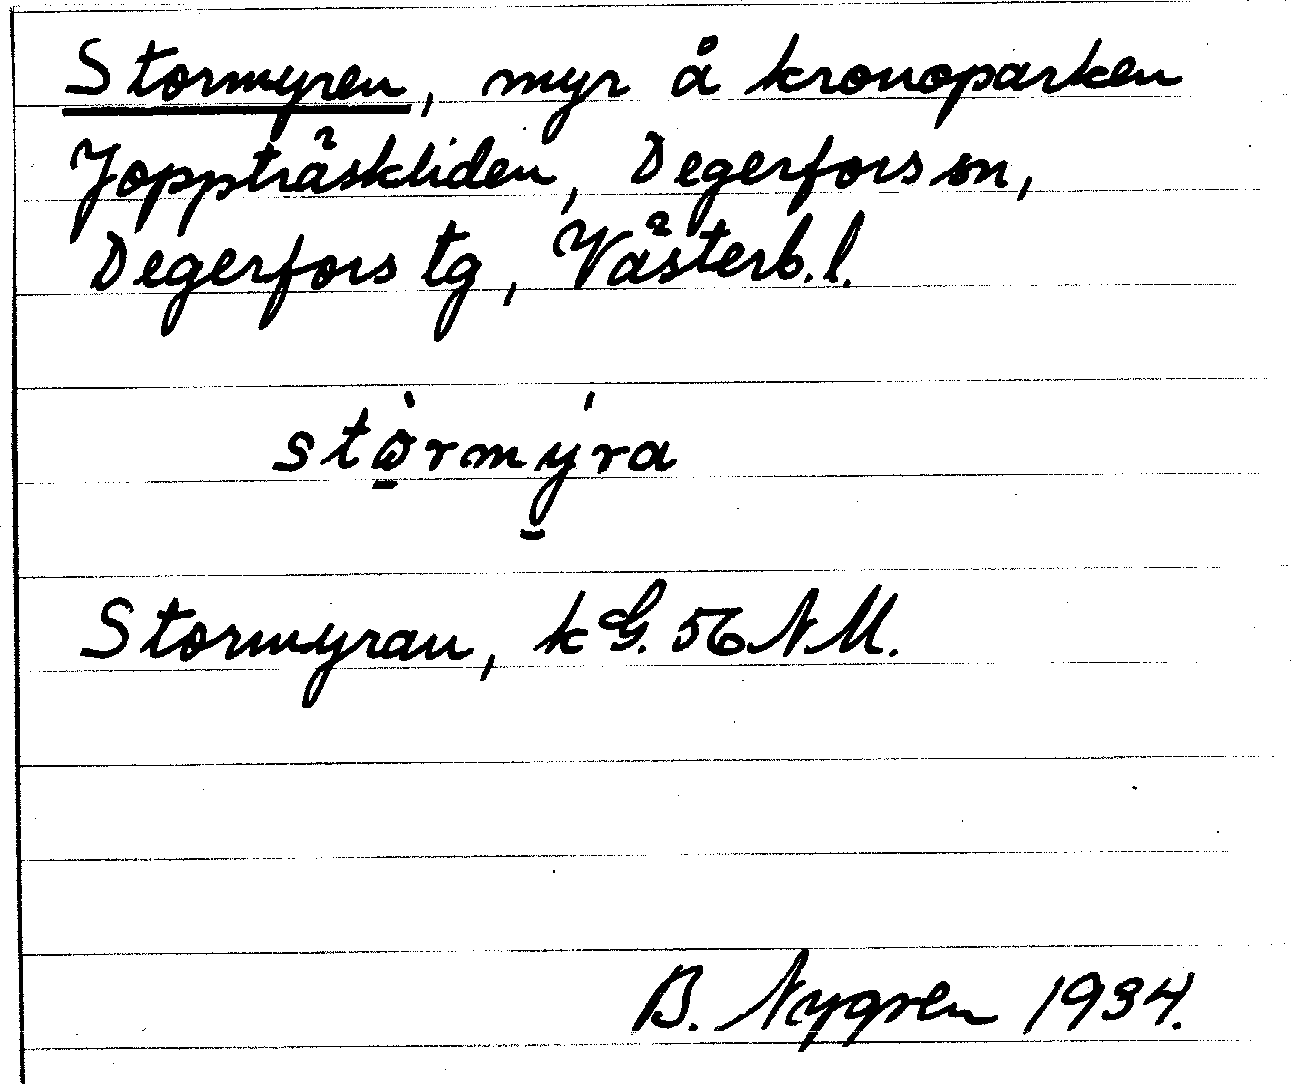 Stormyren, myr å kronoparken
Joppträskliden, Degerfors sn,
Degerfors tg, Västerb. l.
stòrmýra
Stormyran, kG. 56 NM.
B. Nygren 1934.